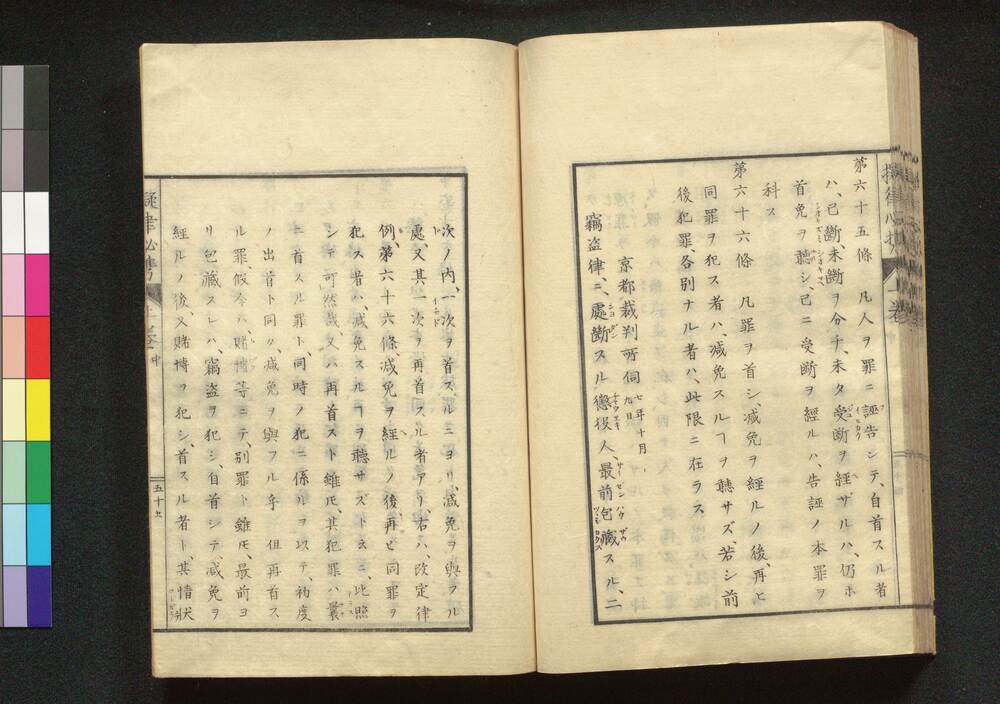 第六十五條 凡人ヲ罪ニ誣告シテ、自首スル者
ハ、已斷、未斷ヲ分ナ、未タ受斷ヲ經ザルハ、仍ホ
首免ヲ聽シ、已ニ受斷ヲ經ルハ、告誣ノ本罪ヲ
科ス
第六十六條 凡罪ヲ首シ、減免ヲ經ルノ後、再ヒ
同罪ヲ犯ス者ハ、減免スルヿヲ聽サズ、若シ前
後犯罪、各別ナル者ハ、此限ニ在ラス
京都裁判所伺 七年十月九日
竊盗律ニ、處斷スル懲役人、最前包藏スル、二
次ノ内、一次ヲ首スルニヨリ、減免ヲ與フル
處、又其一次ヲ再首スル者アリ、右ハ、改定律
例、第六十六條減免ヲ經ルノ後、再ヒ同罪ヲ
犯ス者ハ、減免スルヿヲ聽サズト云ニ、比照
シテ可然哉、又ハ再首スト雖モ、其犯罪ハ最
ニ首スル罪ト、同時ノ犯ニ係ルヲ以テ、初度
ノ出首ト同ク、減免ヲ與フル乎 但再首ス
ル罪、假令ハ、賭博等ニテ、別罪ト雖モ、最前ヨ
リ包藏スレハ、竊盗ヲ犯シ、自首シテ、減免ヲ
經ルノ後、又賭博ヲ犯シ、首スル者ト、其情狀
五十七